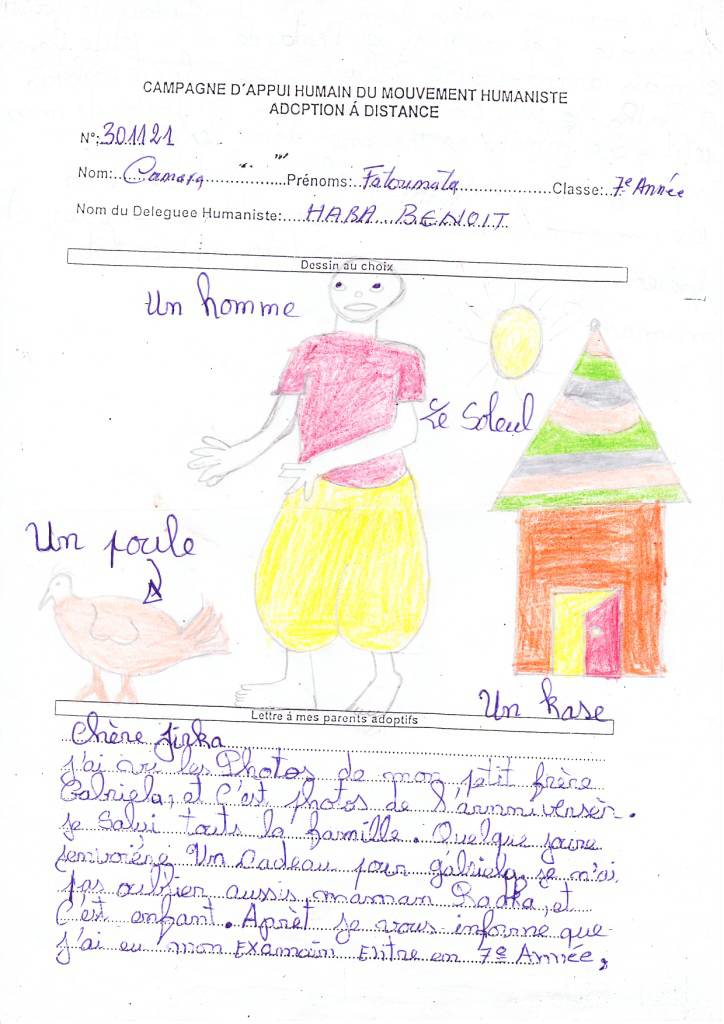 CAMPAGNE D´APPUI HUMAIN DU MOUVEMENT HUMANISTE
ADOPTION Á DISTANCE
N°: 301121
Nom: Camara Prénoms: Fatoumata Classe: 7e Année
Nom du Deleguee Humaniste: HABA BENOIT
Dessin au choix
Un homme
Le Soleul
Un poule
Un kase
Lettre á mes parents adoptifs
Chère Jirka
j'ai vu les Photos de mon petit frère
Gabriela, et C'est photos de l'annniversèr.
je Salui touts la famille. Quelque joure
jenvoiérè Un Cadeau pour gabriela, je n'ai
pas oublier aussis maman Radka, et
C'est enfant. Aprèt je vous informe que
j'ai eu mon EXamain Entre en 7e Année,